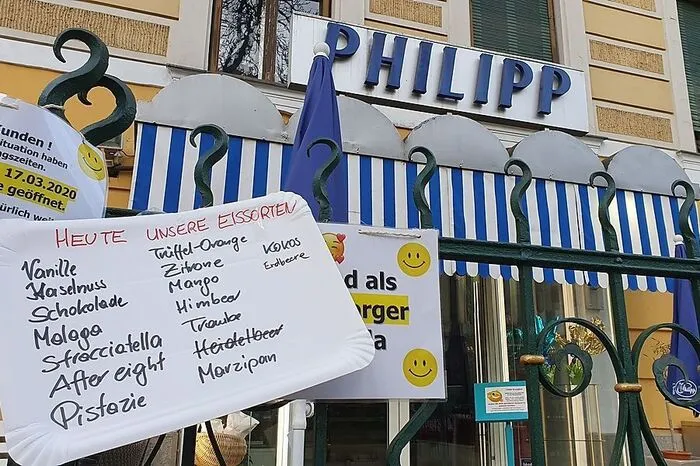 PHILIPP
Kunden !
ituation haben
gszeiten.
17.03.2020
geöffnet.
ürlich wei
HEUTE UNSERE EISSORTEN
Vanille
Haselnuss
Schokolade
Malaga
Straciatella
After eight
Pistazie
Trüffel-Orange
Zitrone
Mango
Himbeer
Traube
Heidelbeer
Marzipan
Kokos
Erdbeere
d als
orger
a